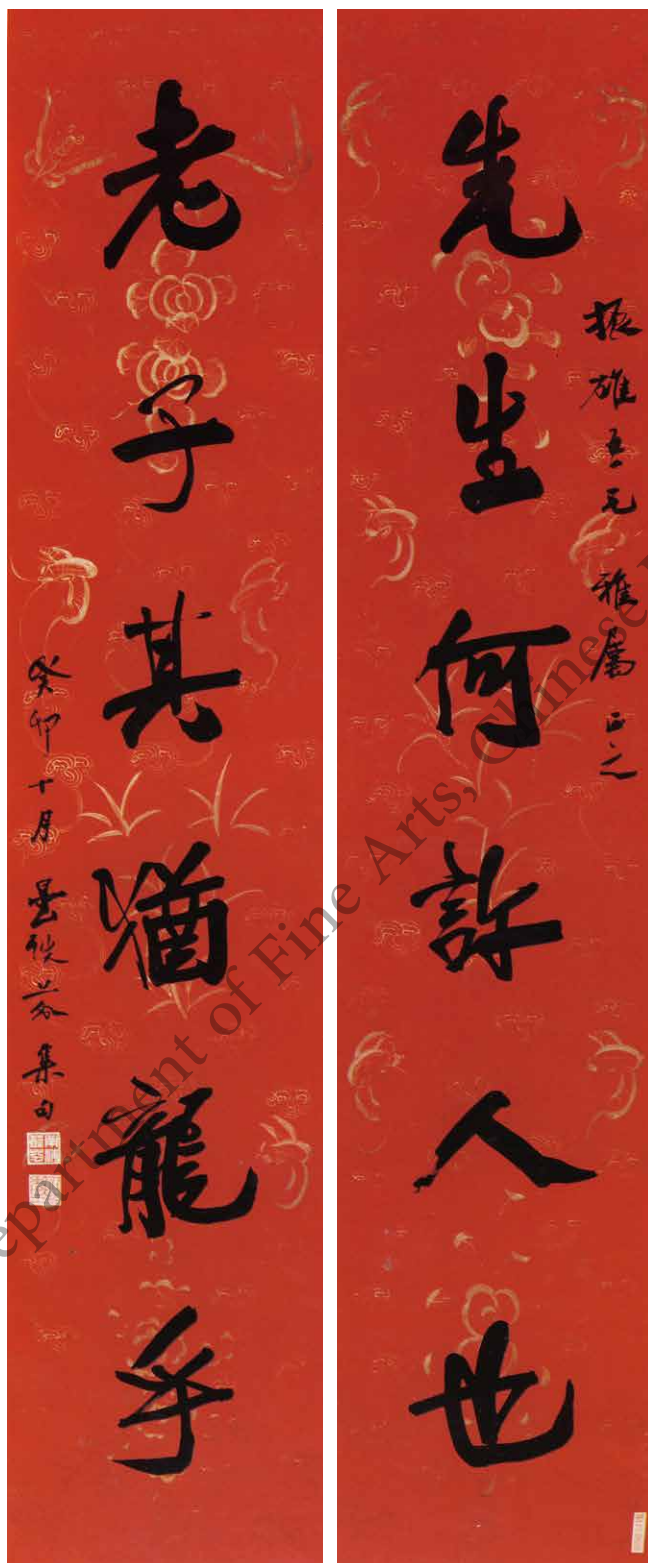 先生何許人也
振雄吾兄 雅屬 正之
老子其猶龍乎
癸卯十月 曼殺 集句
epartment of Fine Arts, Chinese